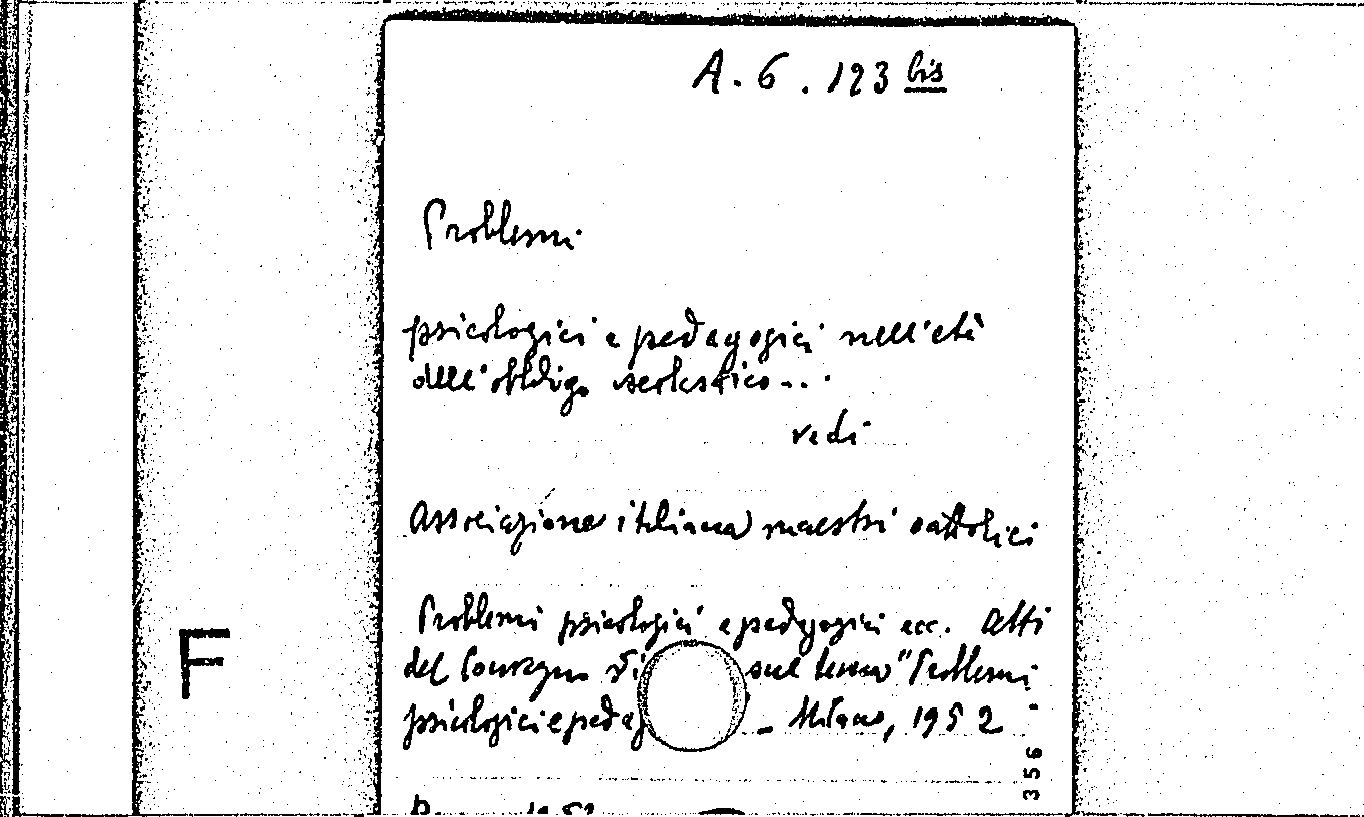 A. 6. 123 bis
Problemi
psicologici e pedagogici nell'età
dell'obbligo scolastico...
vedi
Associazione italiana maestri cattolici
Problemi psicologici e pedagogici ecc. Atti
del Convegno sul tema "Problemi
F
psicologici e pedag - Milano, 1952
356
1952